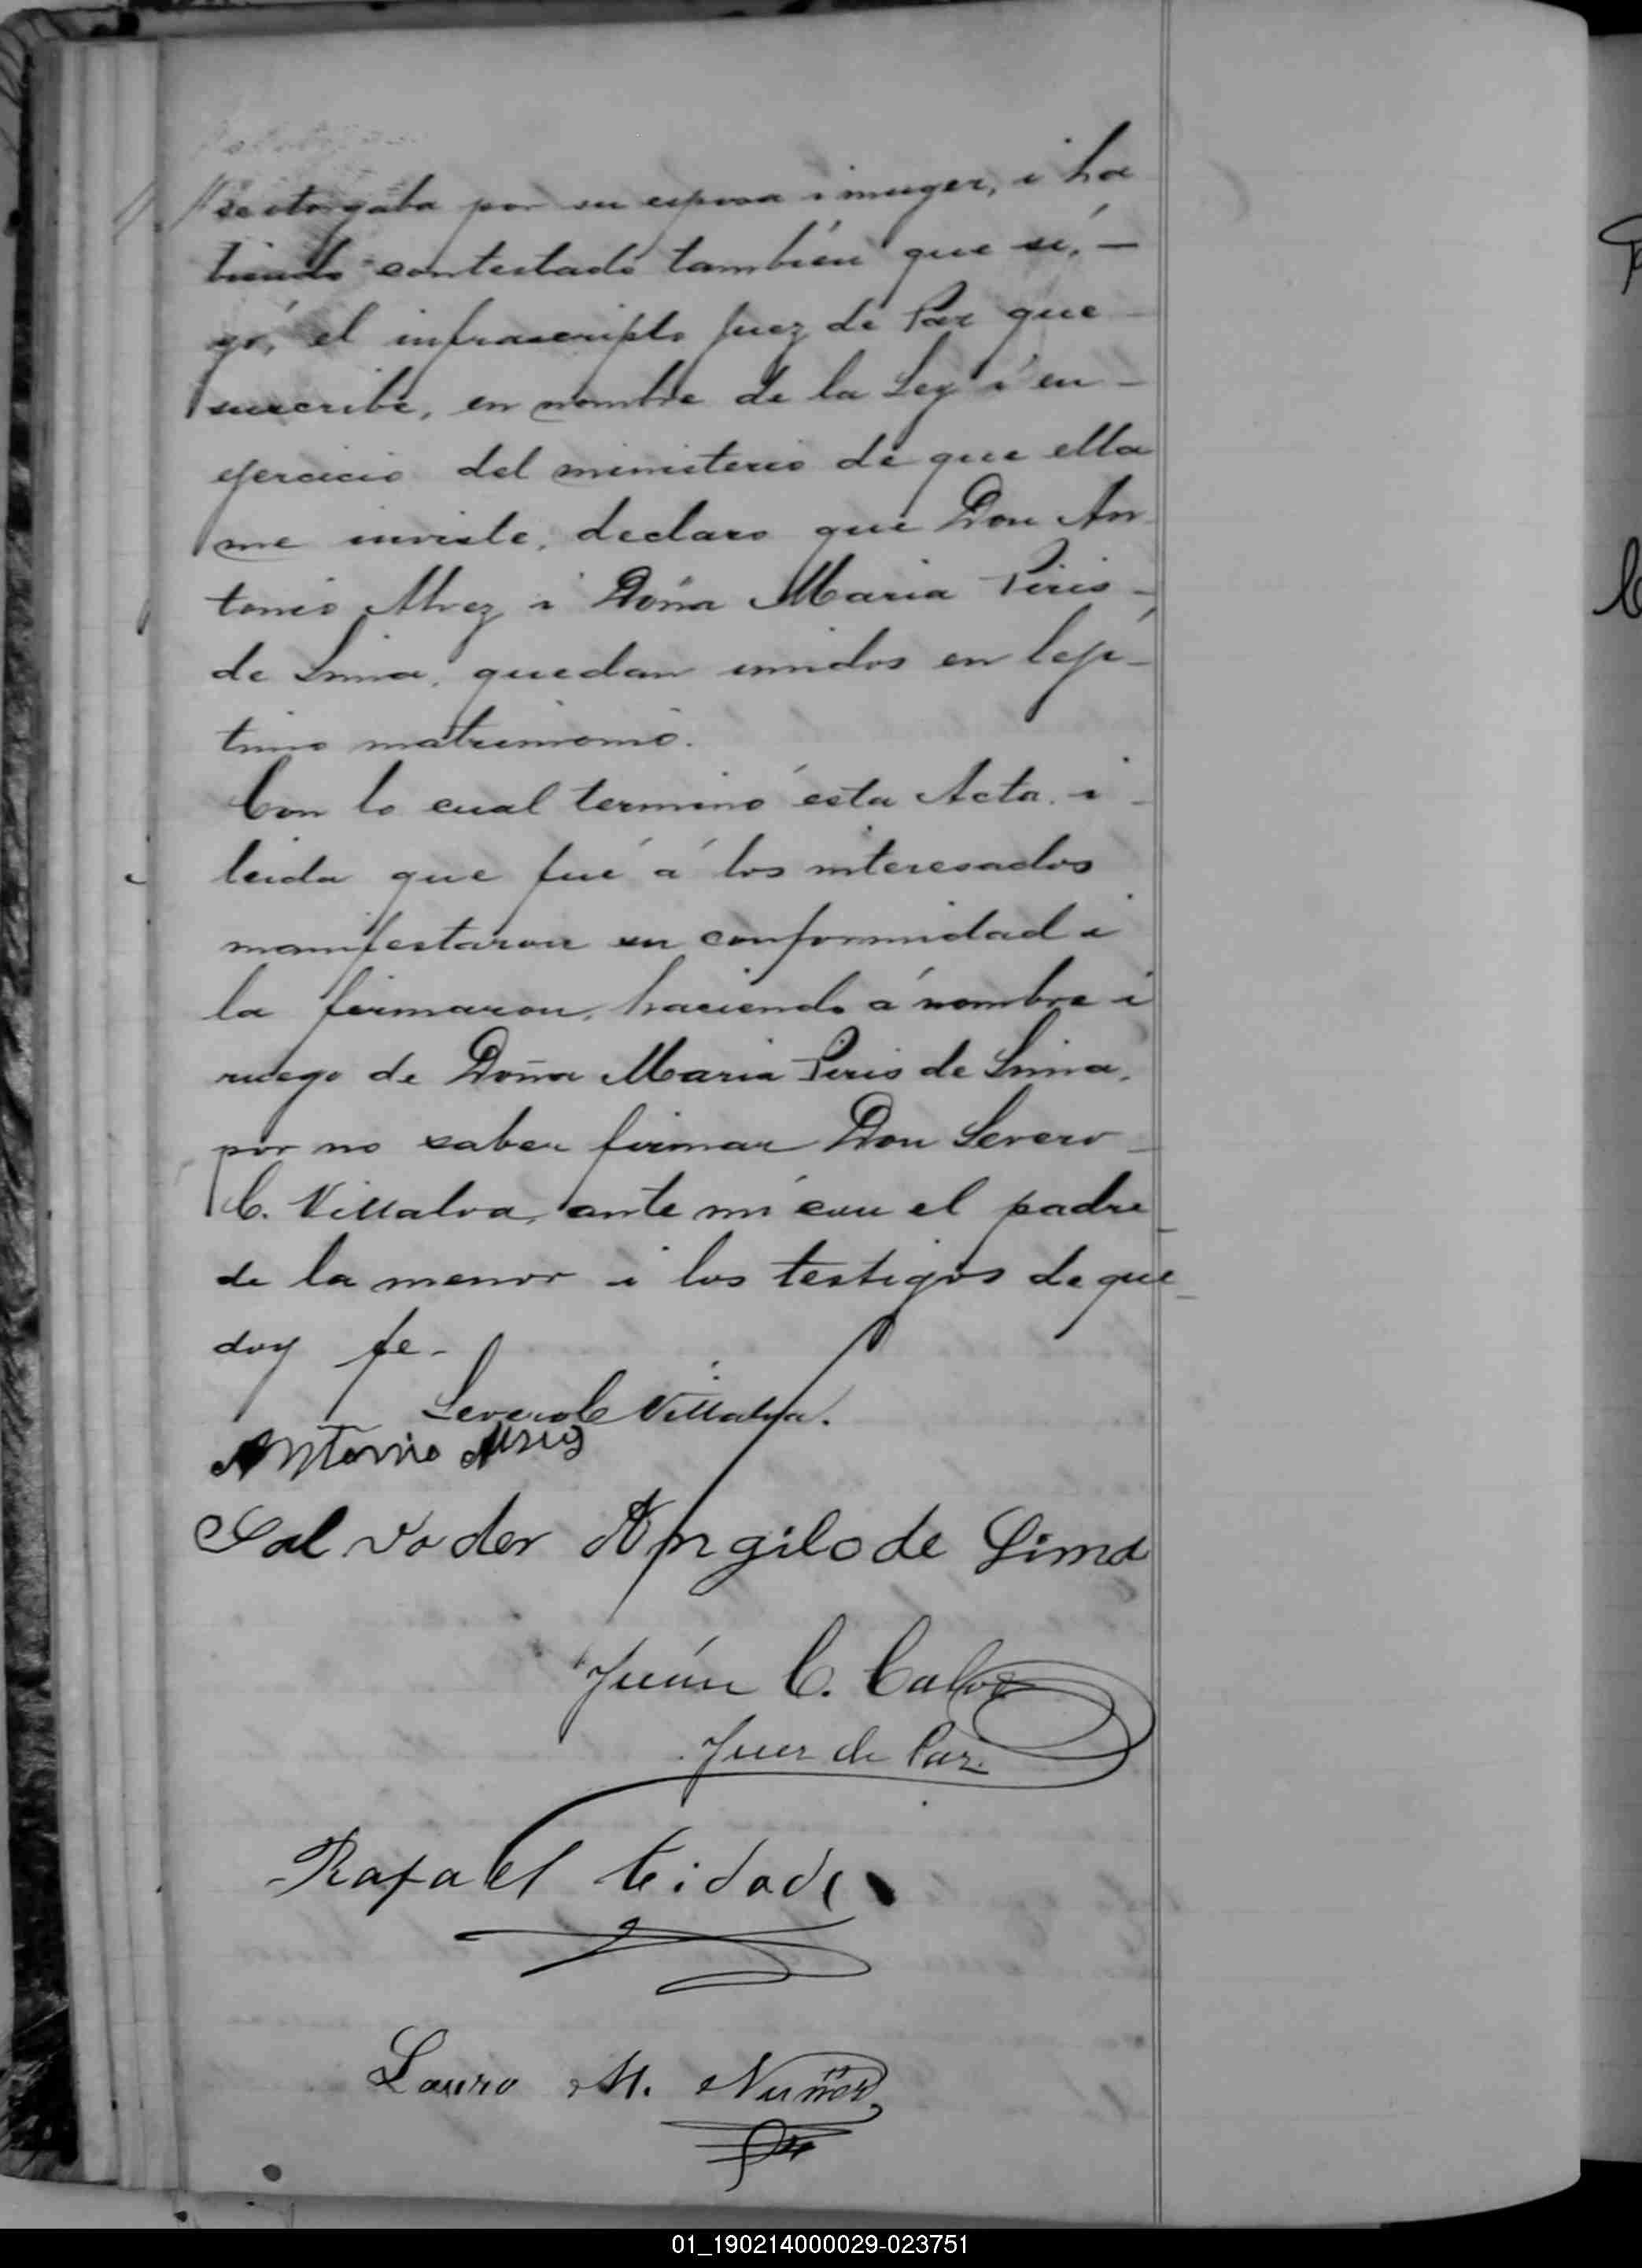 se otorgaba por su esposa i muger, i ha
biendo contestado también que sí, —
yó, el infrascripto Juez de Paz que —
suscribe, en nombre de la Ley i en —
ejercicio del ministerio de que ella
me inviste, declaro que Don An
tonio Alvez i Doña Maria Piris —
de Lima, quedan unidos en lejí—
timo matrimonio.
Con lo cual terminó esta Acta, i —
leida que fué á los interesados
manifestaron su conformidad i
la firmaron, haciendo á nombre i
ruego de Doña Maria Piris de Lima,
por no saber firmar Don Severo —
C. Villalva, ante mí con el padre
de la menor i los testigos de que
doy fe.-
Severo C Villalva.
Antonio
Salvador Angilo de Lima
Juán C. Calvo
Juez de Paz.
Rafael Cidade
Lauro M. Nuñez
01_190214000029-023751